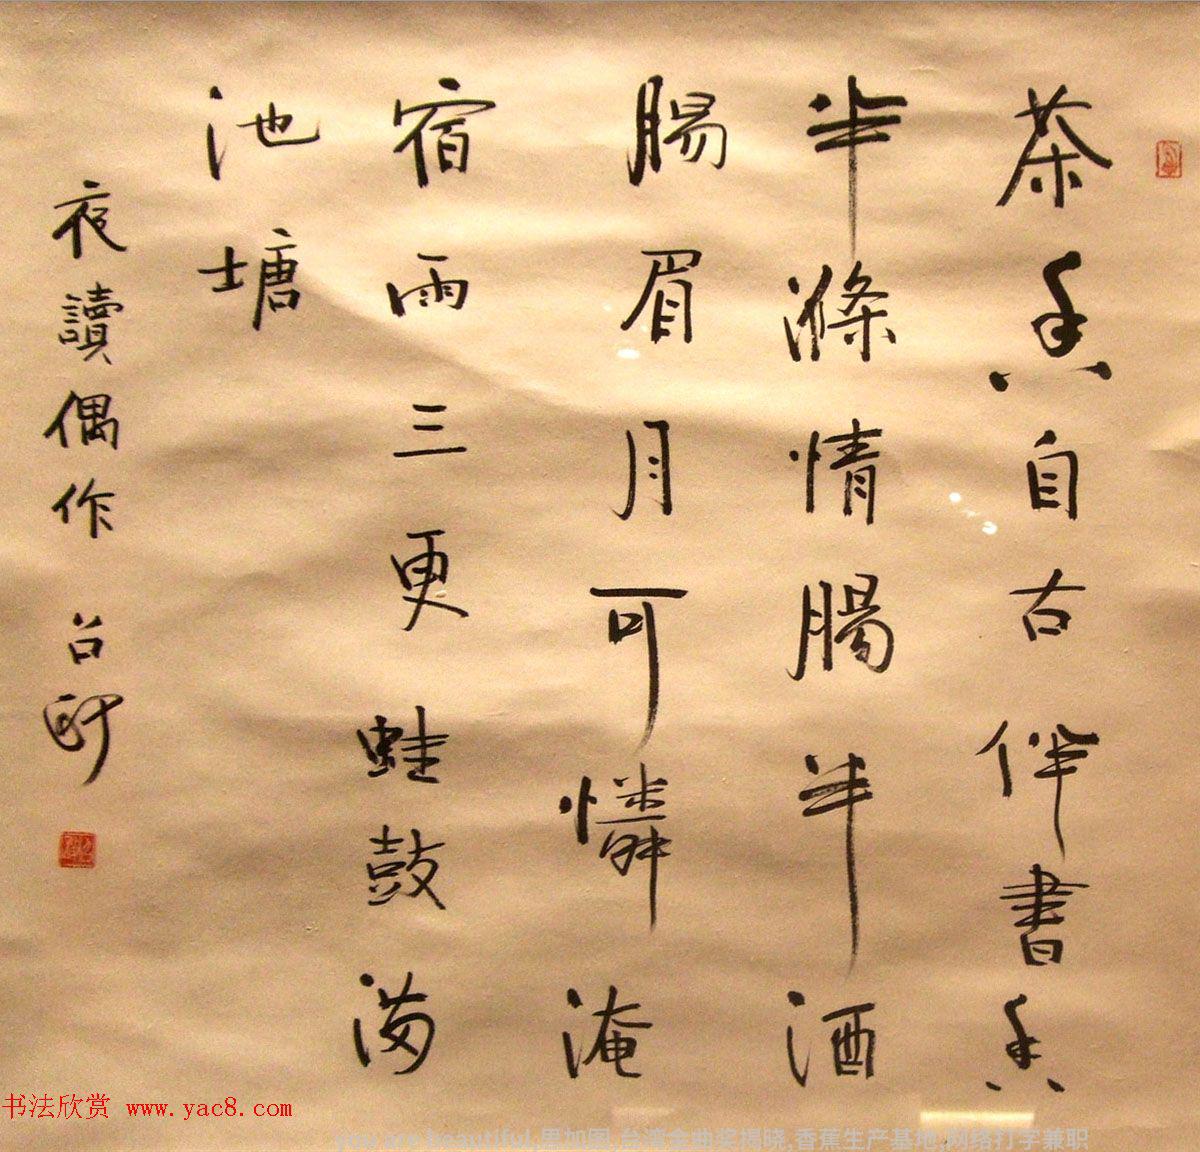 茶香自古伴書香
半滌情腸半酒
腸眉月可憐淹
宿雨三更蛙鼓滿
池塘
夜讀偶作 台
书法欣赏 www.yac8.com
you are beautiful,台湾金曲奖揭晓,香蕉生产基地,网络打字兼职